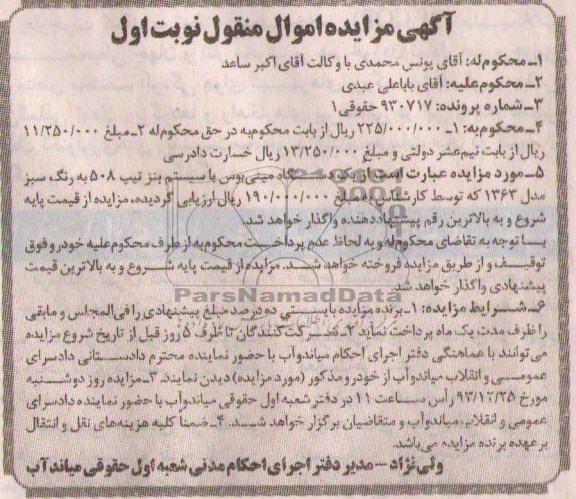 آگهی مزایده اموال منقول نوبت اول
۱ـ محکوم‌له: آقای یونس محمدی با وکالت آقای اکبر ساعد
۲ـ محکوم‌علیه: آقای باباعلی عبدی
۳ـ شماره پرونده: ۹۳۰۷۱۷ حقوقی۱
۴ـ محکوم‌به: ۱ـ ۲۲۵/۰۰۰/۰۰۰ ریال از بابت محکوم‌به در حق محکوم‌له ۲ـ مبلغ ۱۱/۲۵۰/۰۰۰
ریال از بابت نیم‌عشر دولتی و مبلغ ۱۳/۲۵۰/۰۰۰ ریال خسارت دادرسی
۵ـ مورد مزایده عبارت است از یک دستگاه مینی‌بوس با سیستم بنز تیپ ۵۰۸ به رنگ سبز
مدل ۱۳۶۳ که توسط کارشناس به مبلغ ۱۹۰/۰۰۰/۰۰۰ ریال ارزیابی گردیده، مزایده از قیمت پایه
شروع و به بالاترین رقم پیشنهاددهنده واگذار خواهد شد.
با توجه به تقاضای محکوم‌له و به لحاظ عدم پرداخت محکوم‌به از طرف محکوم‌علیه خودرو فوق
توقیف و از طریق مزایده فروخته خواهد شد. مزایده از قیمت پایه شروع و به بالاترین قیمت
پیشنهادی واگذار خواهد شد.
ParsNamadData
۶ـ شرایط مزایده: ۱ـ برنده مزایده بایستی ده درصد مبلغ پیشنهادی را فی‌المجلس و مابقی
را ظرف مدت یک ماه پرداخت نماید ۲ـ شرکت‌کنندگان تا ظرف ۵ روز قبل از تاریخ شروع مزایده
می‌توانند با هماهنگی دفتر اجرای احکام میاندوآب با حضور نماینده محترم دادستانی دادسرای
عمومی و انقلاب میاندوآب از خودرو مذکور (مورد مزایده) دیدن نمایند. ۳ـ مزایده روز دوشنبه
مورخ ۹۳/۱۲/۲۵ رأس ساعت ۱۱ در دفتر شعبه اول حقوقی میاندوآب با حضور نماینده دادسرای
عمومی و انقلاب میاندوآب و متقاضیان برگزار خواهد شد. ۴ـ ضمناً کلیه هزینه‌های نقل و انتقال
بر عهده برنده مزایده می‌باشد.
ولی نژاد ـ مدیر دفتر اجرای احکام مدنی شعبه اول حقوقی میاندآب